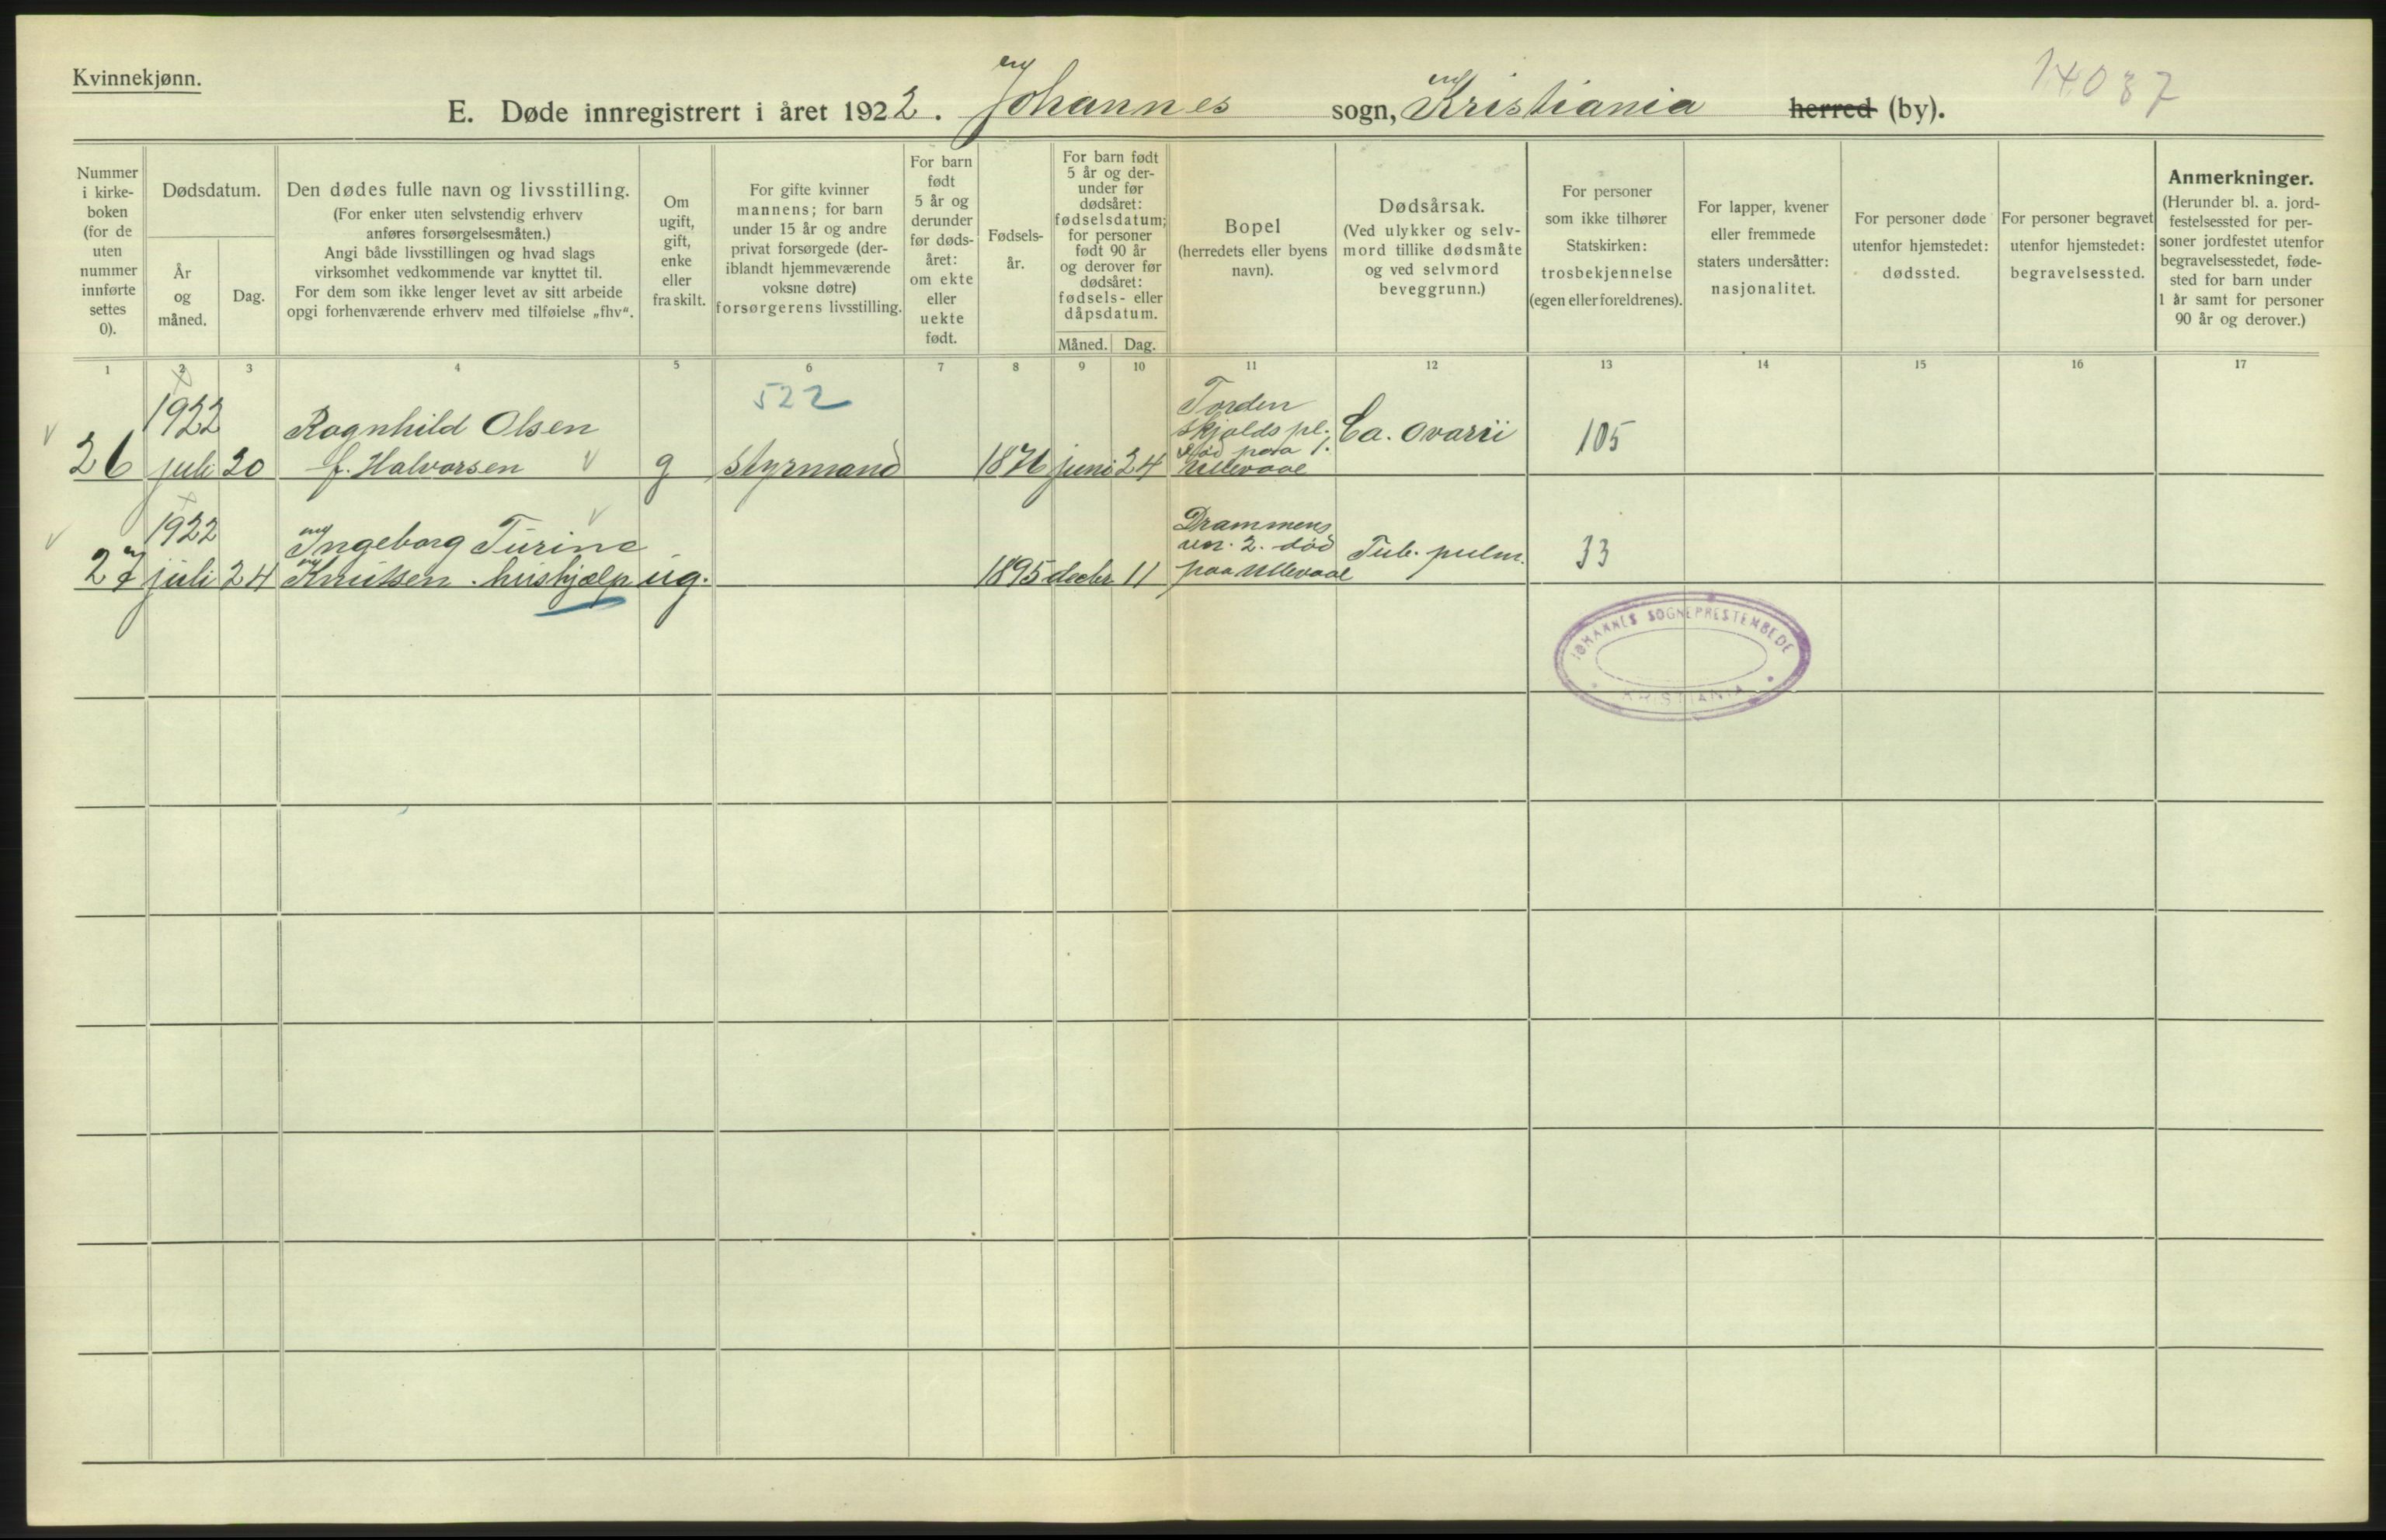 Kvinnekjønn.
14087
E. Døde innregistrert i året 1922. Johannes sogn, Kristiania herred (by).
Nummer
i kirke-
boken
(for de
uten
nummer
innførte
settes
0).
Dødsdatum.
År
og
måned.
Dag.
Den dødes fulle navn og livsstilling.
(For enker uten selvstendig erhverv
anføres forsørgelsesmåten.)
Angi både livsstillingen og hvad slags
virksomhet vedkommende var knyttet til.
For dem som ikke lenger levet av sitt arbeide
opgi forhenværende erhverv med tilføielse „fhv“.
Om
ugift,
gift,
enke
eller
fraskilt.
For gifte kvinner
mannens; for barn
under 15 år og andre
privat forsørgede (der-
iblandt hjemmeværende
voksne døtre)
forsørgerens livsstilling.
For barn
født
5 år og
derunder
før døds-
året:
om ekte
eller
uekte
født.
Fødsels-
år.
For barn født
5 år og der-
under før
dødsåret:
fødselsdatum;
for personer
født 90 år
og derover før
dødsåret:
fødsels- eller
dåpsdatum.
Måned. Dag.
Bopel
(herredets eller byens
navn).
Dødsårsak.
(Ved ulykker og selv-
mord tillike dødsmåte
og ved selvmord
beveggrunn.)
For personer
som ikke tilhører
Statskirken:
trosbekjennelse
(egen eller foreldrenes).
For lapper, kvener
eller fremmede
staters undersåtter:
nasjonalitet.
For personer døde
utenfor hjemstedet:
dødssted.
For personer begravet
utenfor hjemstedet:
begravelsessted.
Anmerkninger.
(Herunder bl. a. jord-
festelsessted for per-
soner jordfestet utenfor
begravelsesstedet, føde-
sted for barn under
1 år samt for personer
90 år og derover.)
1 2 3 4 5 6 7 8 9 10 11 12 13 14 15 16 17
26
1922
juli 20
Ragnhild Olsen
f. Halvorsen
g
522
styrmand
1876 juni 24
Torden
skjolds pl.
død paa 1.
Ullevaal
Ca. ovarii
105
27
1922
juli 24
Ingeborg Turine
Knutsen. hushjælp
ug.
1895 decbr 11
Drammens
vei. 2. død
paa Ullevaal
Tub. pulm.
33
JOHANNES SOGNEPRESTEMBEDE
KRISTIANIA